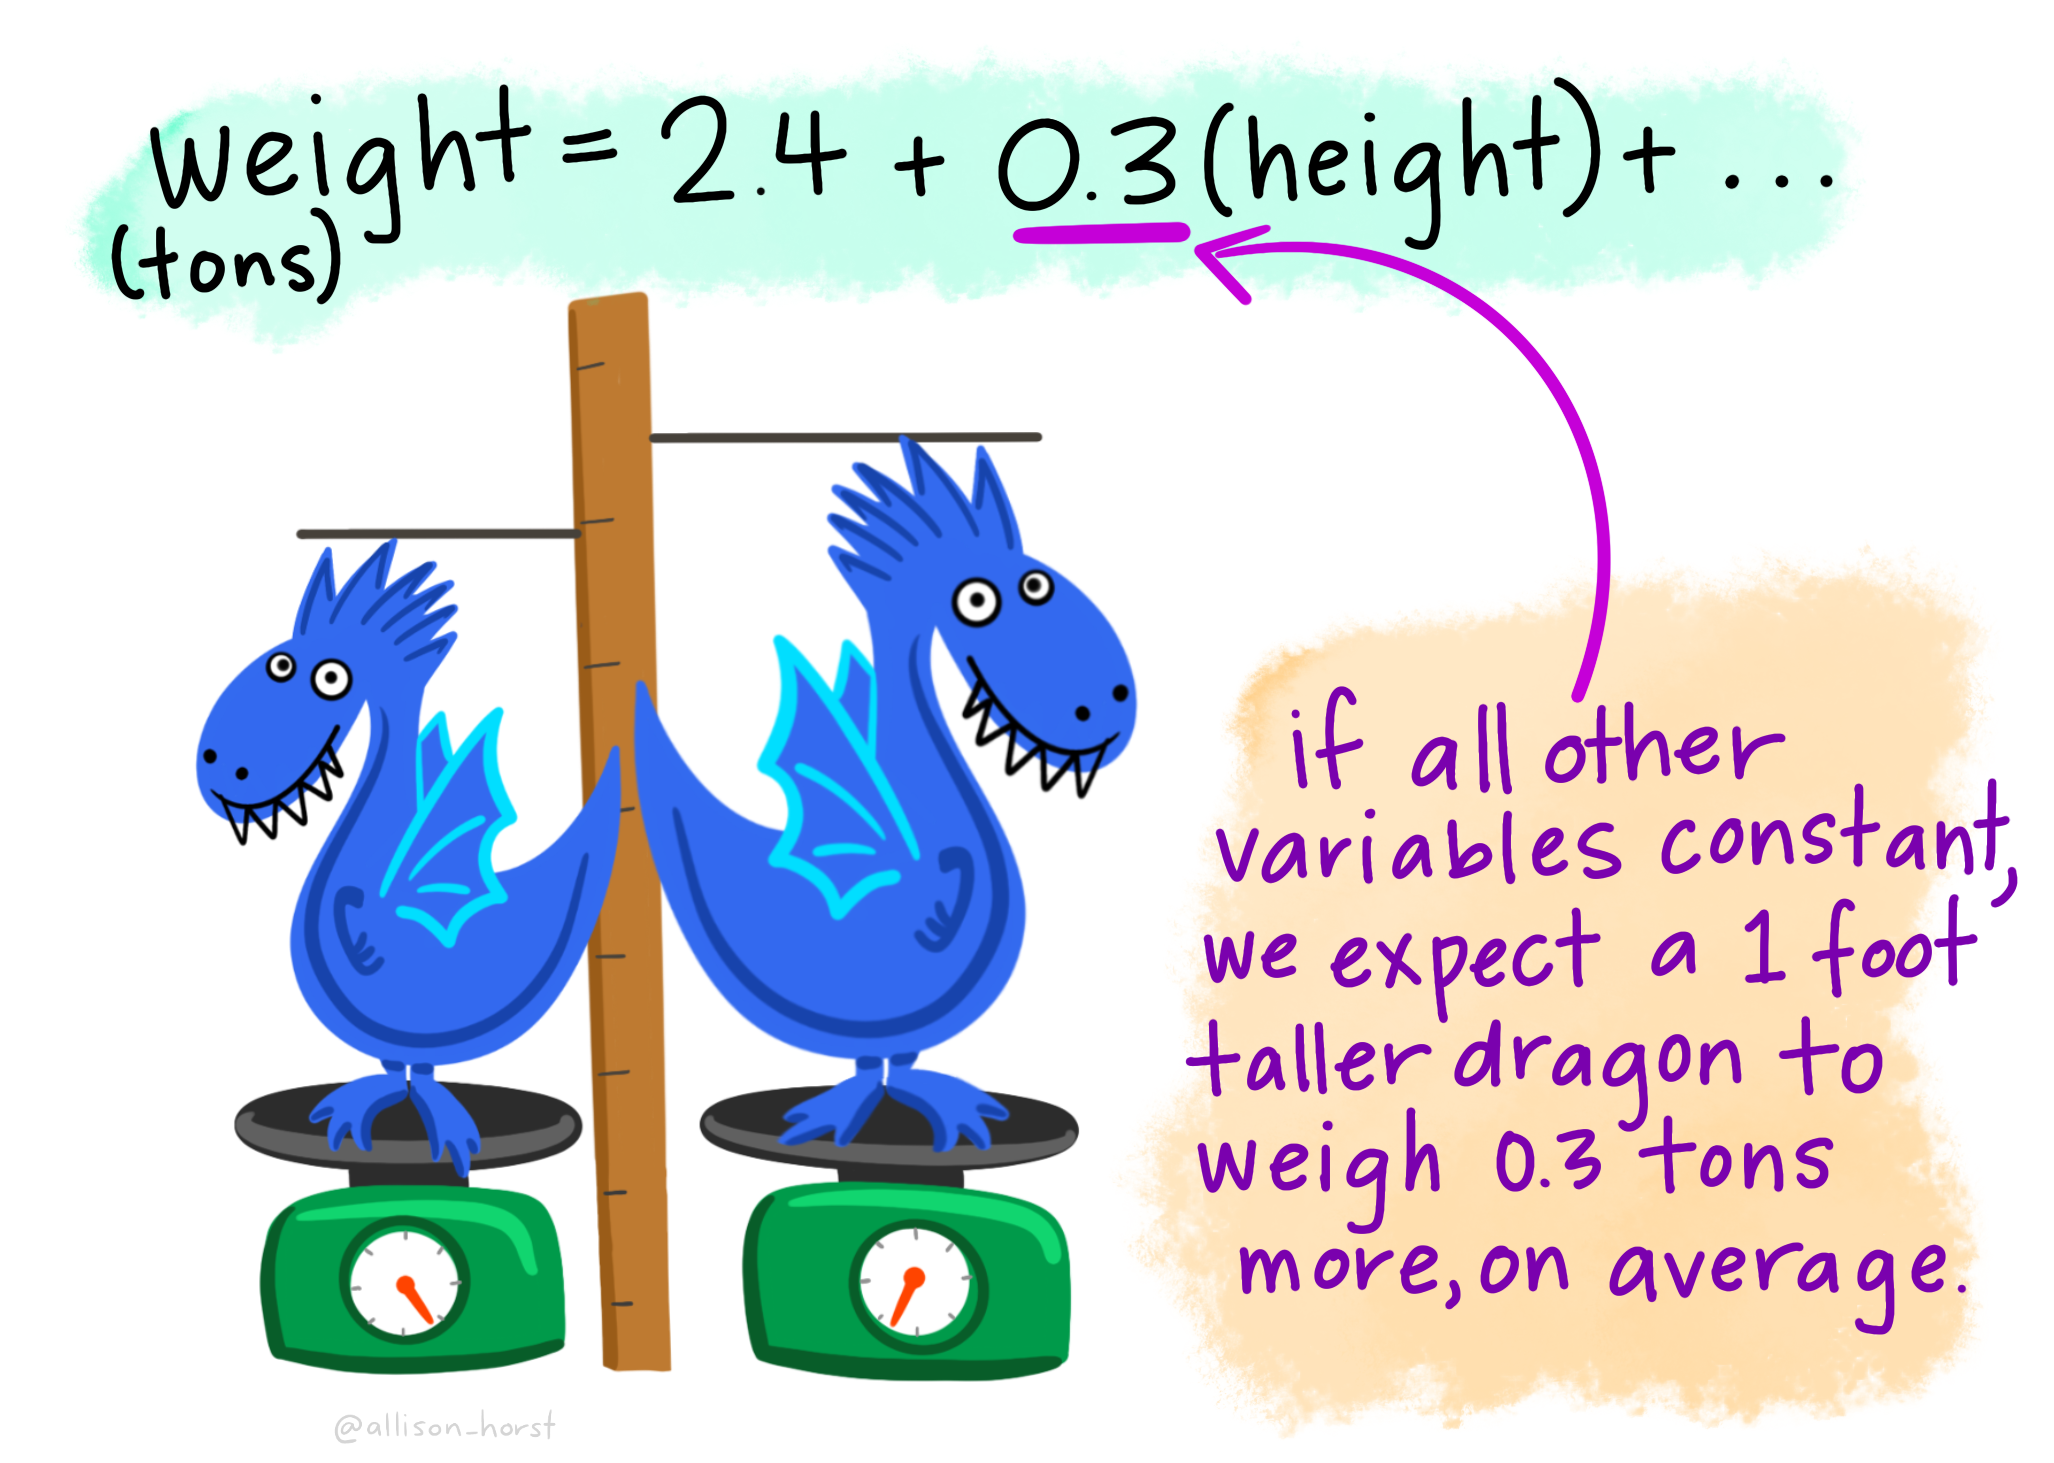 Weight = 2.4 + 0.3(height) + ...
(tons)
if all other
variables constant,
we expect a 1 foot
taller dragon to
weigh 0.3 tons
more, on average.
@allison_horst